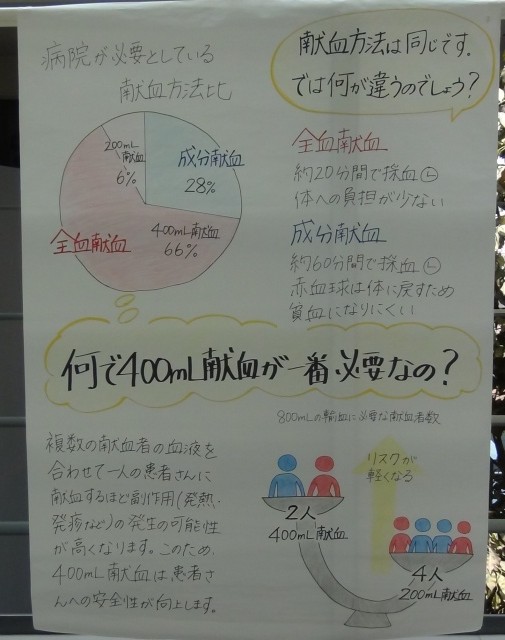 病院が必要としている
献血方法比
献血方法は同じです。
では何が違うのでしょう?
200mL
献血
6%
成分献血
28%
全血献血
400mL献血
66%
全血献血
約20分間で採血
体への負担が少ない
成分献血
約60分間で採血
赤血球は体に戻すため
貧血になりにくい
何で400mL献血が一番必要なの?
800mLの輸血に必要な献血者数
複数の献血者の血液を
合わせて一人の患者さんに
献血するほど副作用(発熱・
発疹など)の発生の可能性
が高くなります。このため、
400mL献血は患者さ
んへの安全性が向上します。
リスクが
軽くなる
2人
400mL献血
4人
200mL献血